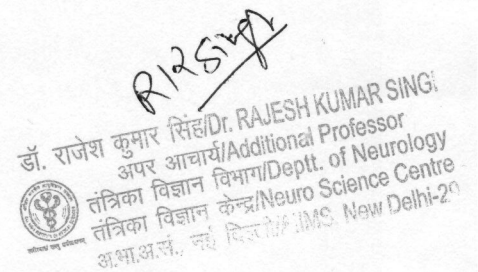 RKSingh
डॉ. राजेश कुमार सिंह/Dr. RAJESH KUMAR SING
अपर आचार्य/Additional Professor
तंत्रिका विज्ञान विभाग/Deptt. of Neurology
तंत्रिका विज्ञान केन्द्र/Neuro Science Centre
अ.भा.आ.सं., नई New Delhi-29